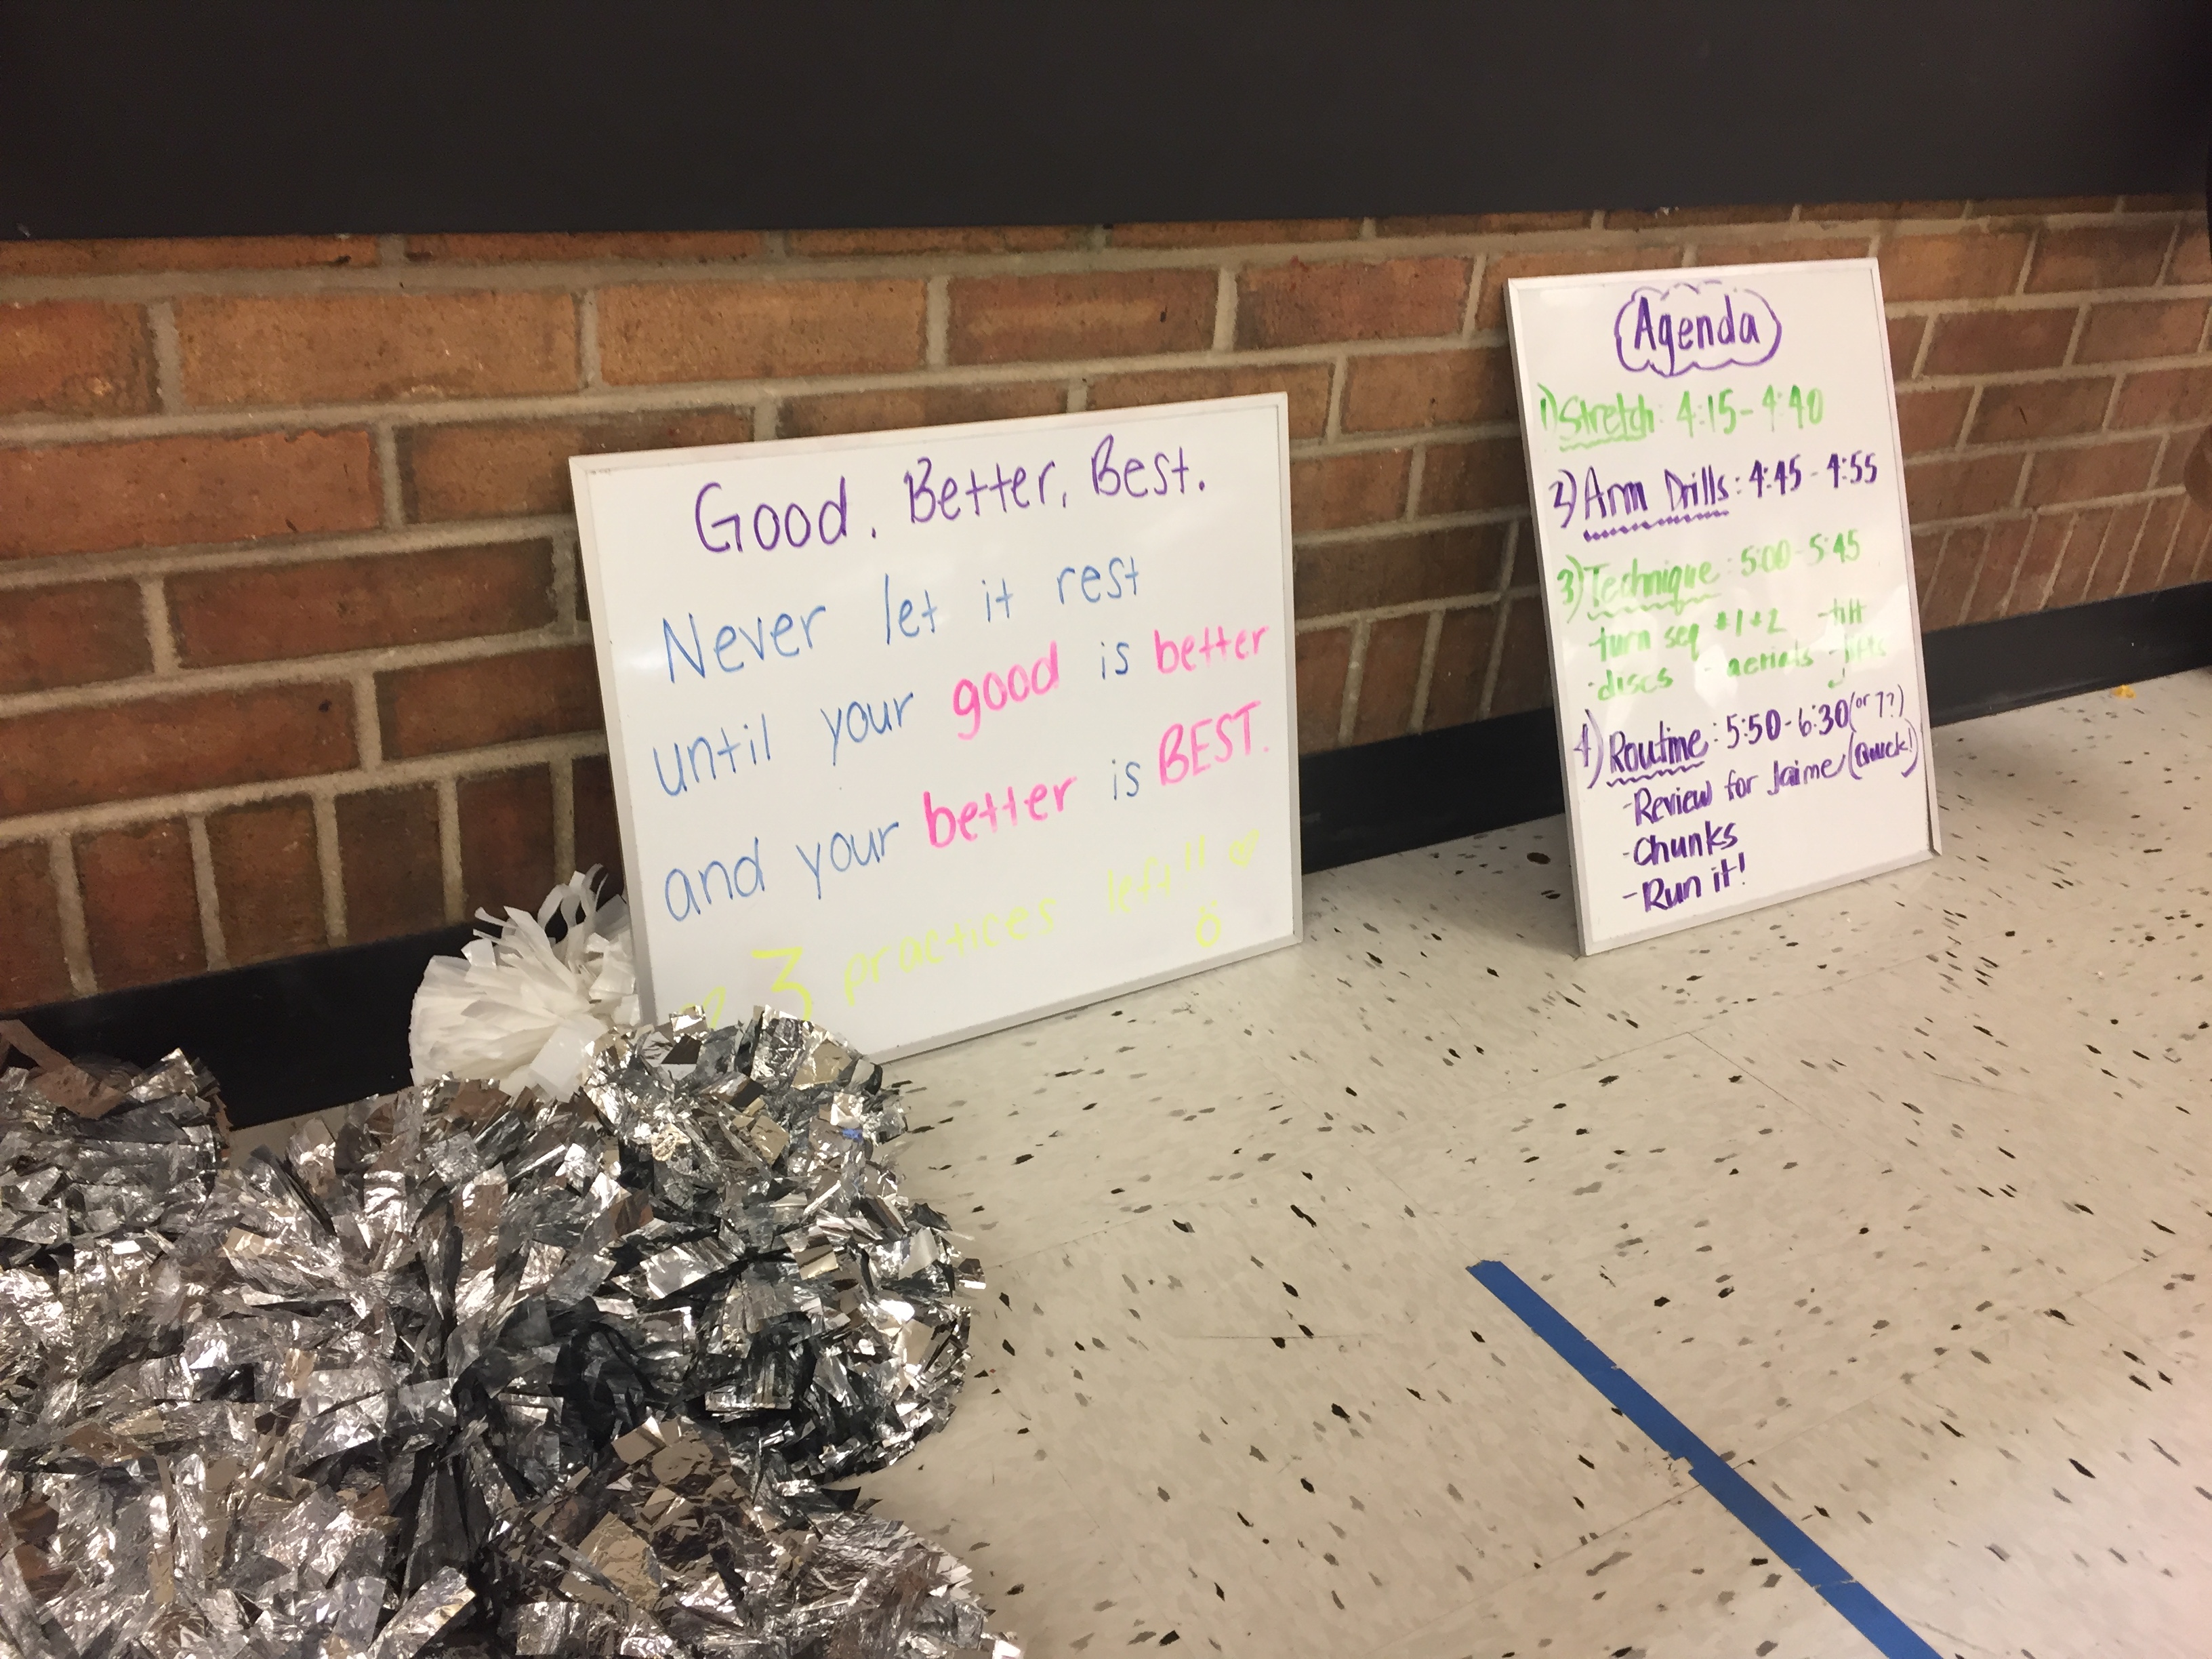 Good. Better. Best.
Never let it rest
until your good is better
and your better is BEST.
3 practices left!!
Agenda
1) Stretch: 4:15-4:40
2) Arm Drills: 4:45-4:55
3) Technique: 5:00-5:45
-turn seq #1+2 -tilt
-discs - aerials -jumps
4) Routine: 5:50-6:30 (or 7?)
-Review for Jaime (Quick!)
-Chunks
-Run it!